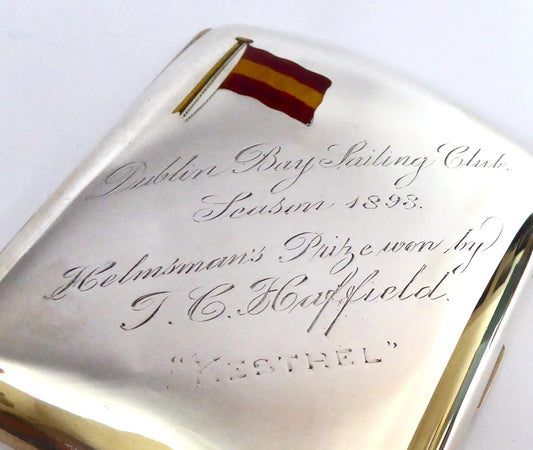 Dublin Bay Sailing Club.
Season 1893.
Helmsman's Prize won by
T. C. Haffield.
"KESTREL"